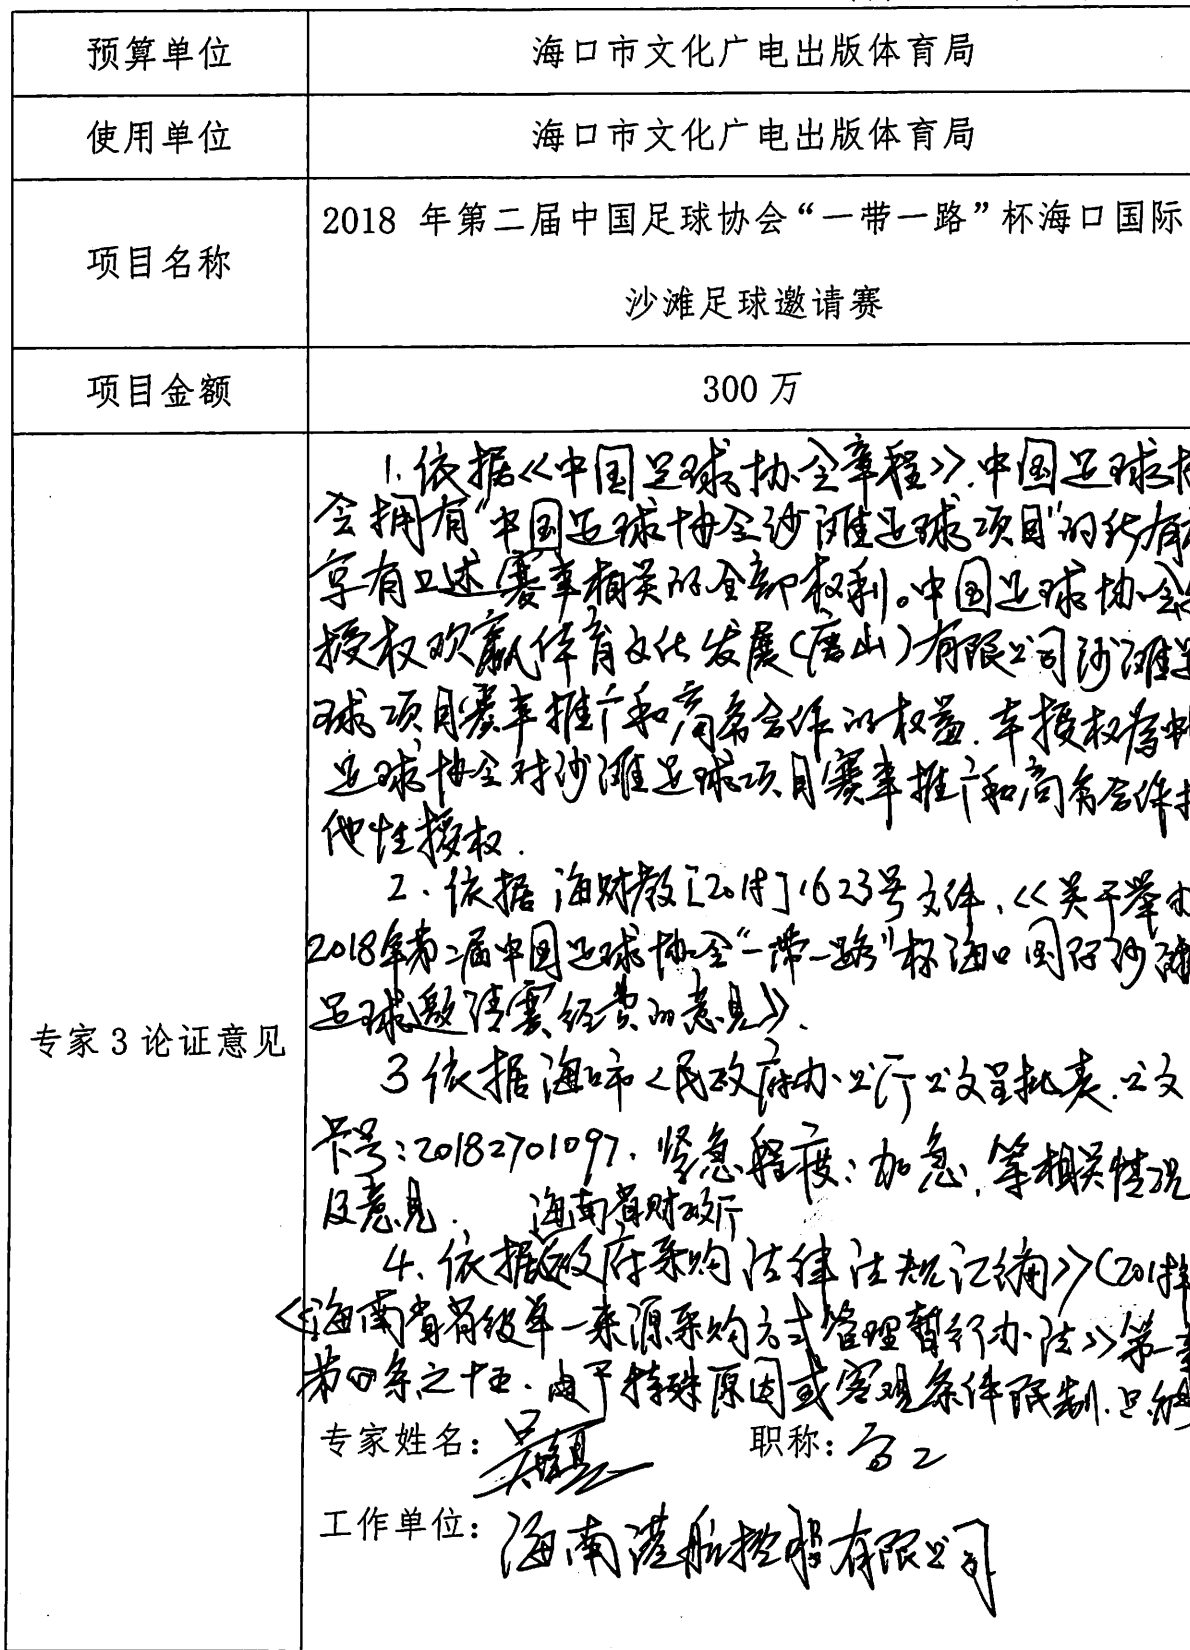 预算单位 海口市文化广电出版体育局
使用单位 海口市文化广电出版体育局
项目名称 2018 年第二届中国足球协会“一带一路”杯海口国际
沙滩足球邀请赛
项目金额 300 万
专家 3 论证意见
1. 依据《中国足球协会章程》，中国足球协
会拥有“中国足球协会沙滩足球项目”的所有权
享有上述赛事相关的全部权利。中国足球协会
授权欢赢体育文化发展（唐山）有限公司沙滩足
球项目赛事推广和商务合作的权益，本授权为中
足球协会对沙滩足球项目赛事推广和商务合作排
他性授权．
2. 依据海财教〔2018〕1623号文件，《关于举办
2018年第二届中国足球协会“一带一路”杯海口国际沙滩
足球邀请赛经费的意见》．
3 依据海口市人民政府办公厅公文呈批表．公文
卡号：20182701097．紧急程度：加急，等相关情况
及意见． 海南省财政厅
4、依据《政府采购法律法规汇编》（2018年
《海南省省级单一来源采购方式管理暂行办法》第一章
第四条之十五．由于特殊原因或客观条件限制．只能
专家姓名： 职称：高工
工作单位：海南港航控股有限公司